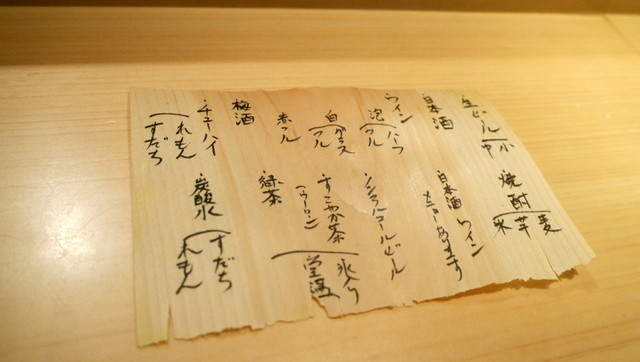 ・生ビール 小 中
・日本酒
・ワイン
泡 ハーフ フル
白 グラス フル
赤 フル
・梅酒
・チューハイ
れもん
すだち
焼酎 麦 芋 米
・日本酒 ワイン
メニューあります
・ノンアルコールビール
・すこやか茶 氷入り 常温
(ウーロン)
・緑茶
・炭酸水
すだち
れもん